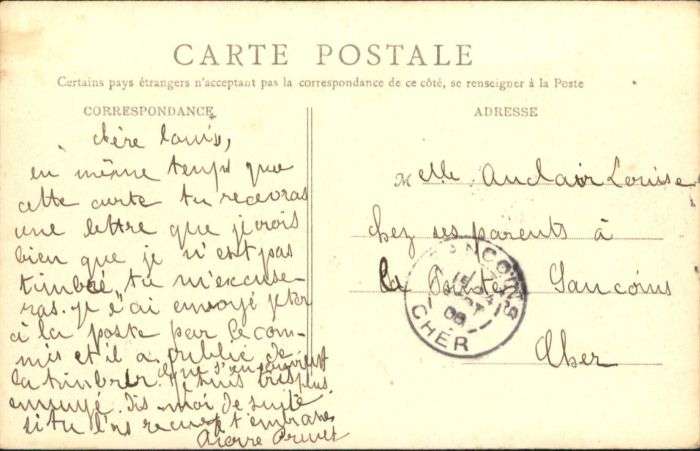 CARTE POSTALE
Certains pays étrangers n'acceptant pas la correspondance de ce côté, se renseigner à la Poste
CORRESPONDANCE
chère Louise,
en même temps que
cette carte tu recevras
une lettre que je crois
bien que je n'est pas
timbrée, tu m'excuse-
ras. je l'ai envoyé jeter
à la poste par le com-
mis et il a oublié de
la timbrer. que s'en souvient
je suis très plus
ennuyé. Dis-moi de suite
si tu l'as reçue. t'embrasse
Pierre
ADRESSE
Melle Auclair Louise
chez ses parents à
la Sancoins
Cher
SANCOINS
08
CHER